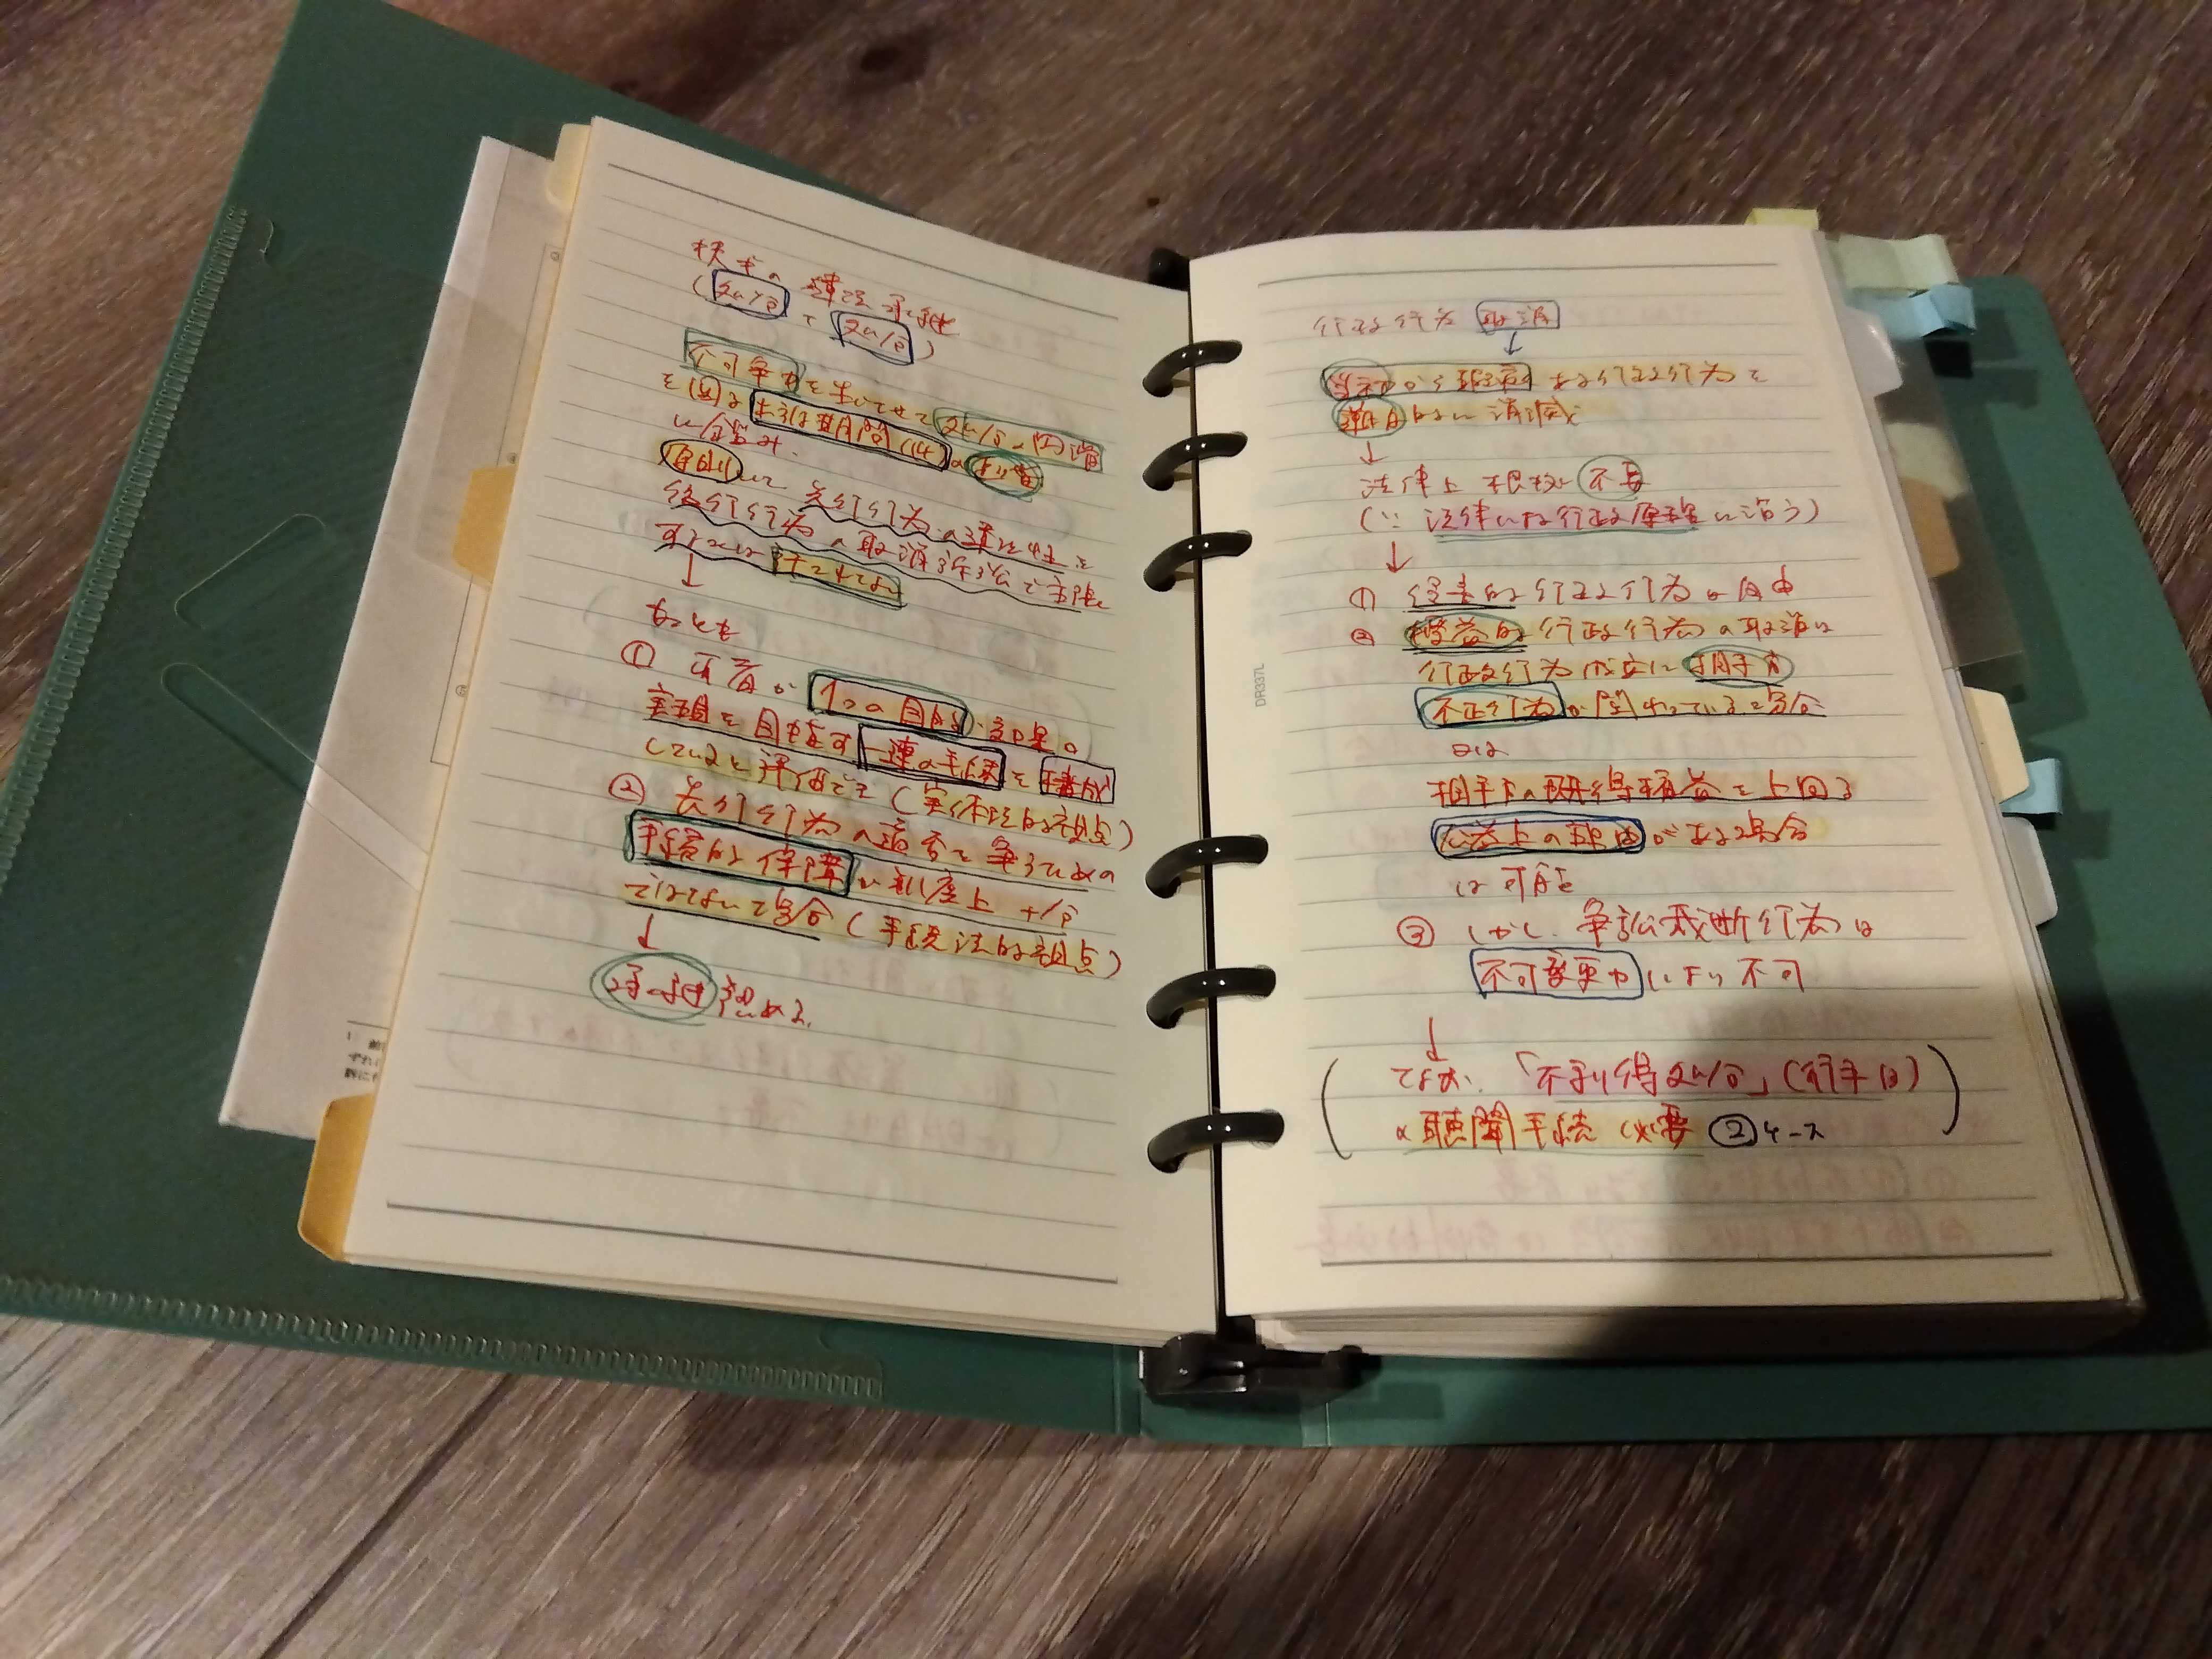 狭義の違法承継
(処分と処分)
不可争力を生じさせて処分の円滑
を図る出訴期間(14)の趣旨
に鑑み、
原則として先行行為の違法性を
後行行為の取消訴訟で主張
することは許されない
↓
もっとも
① 両者が1つの目的・効果の
実現を目指す一連の手続を構成
していると評価でき(実体法的観点)
② 先行行為の適否を争うための
手続的保障が制度上十分
ではない場合(手続法的観点)
↓
承継認める。
行政行為 取消
↓
当初から瑕疵ある行政行為を
遡及的に消滅
↓
法律上根拠 不要
(∵ 法律による行政原理に沿う)
↓
① 侵害的行政行為は自由
② 授益的行政行為の取消は
行政行為成立に相手方
不正行為が関わっている場合
又は
相手方の既得権益を上回る
公益上の理由がある場合
は可能
③ しかし、争訟裁断行為は
不可変更力により不可
↓
なお、「不利益処分」(行手13)
の聴聞手続必要 ②ケース
DR337L